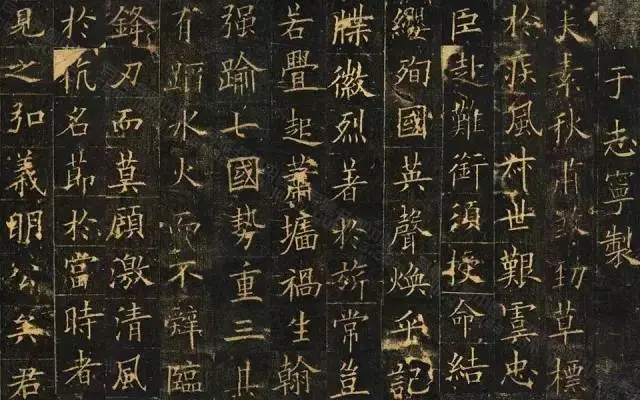 于志寧製
夫素秋肅勁草標
於疾風叔世艱虞忠
臣赴難銜須授命結
纓殉國英聲煥乎記
牒徽烈著於旂常豈
若疊起蕭墻禍生翰
强踰七國勢重三其
有蹈水火而不辭臨
鋒刃而莫顧激清風
於抗名節於當時者
見之弘義明公矣君